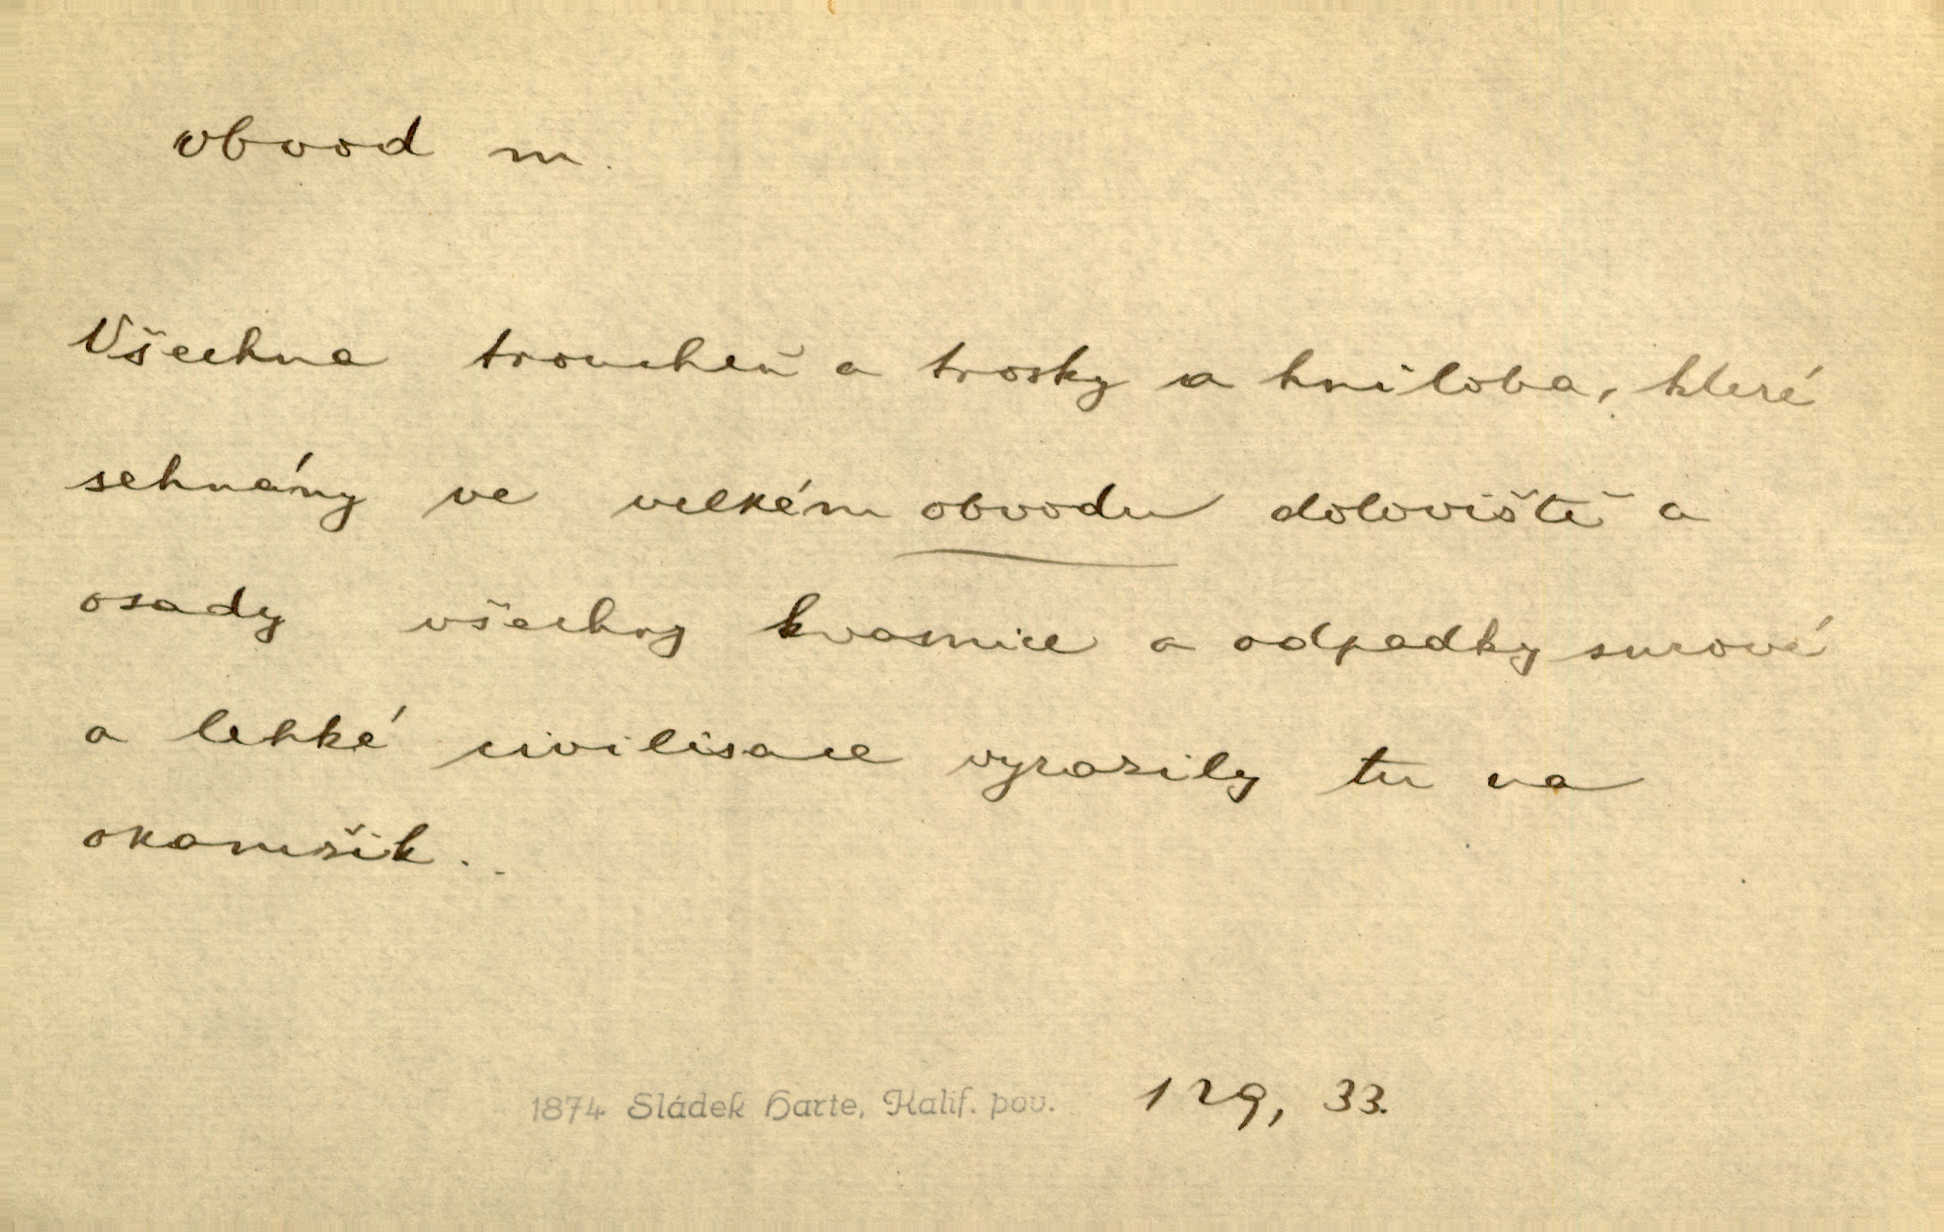 obvod m.
Všechna troucheň a trosky a hniloba, které
sehnány ve velkém obvodu doloviště a
osady všechny kvasnice a odpadky surové
a lehké civilisace vyrazily tu na
okamžik.
1874 Sládek Harte, Kalif. pov. 129, 33.